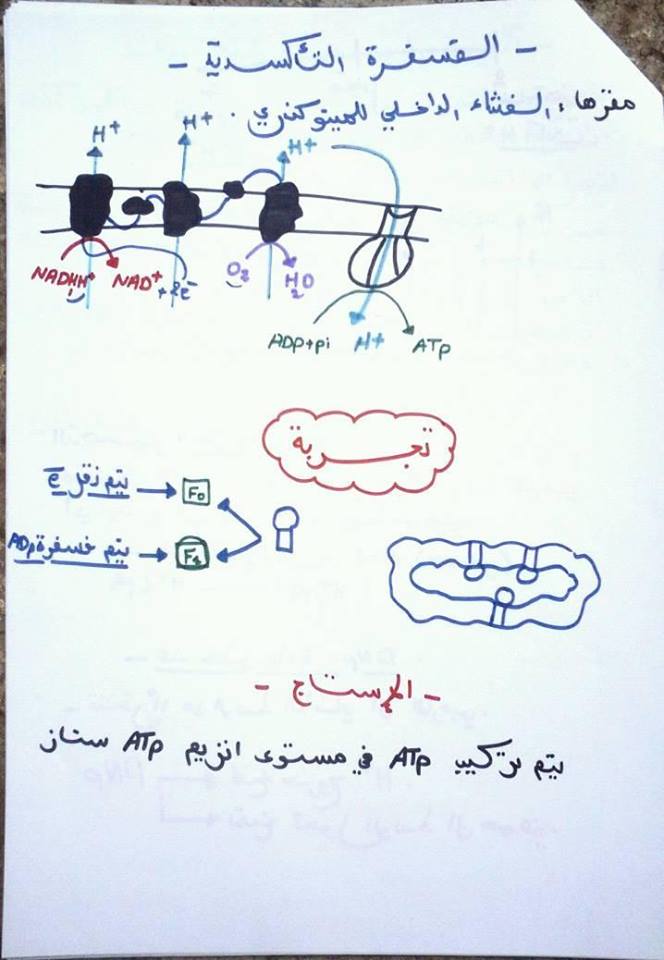 - الفسفرة التأكسدية -
مقرها : الغشاء الداخلي للميتوكندري .
H+ H+ H+
NADHH+ NAD+ +2e- O2 H2O
ADP+pi H+ ATp
تجربة
يتم نقل e- F0
يتم فسفرة ADp F1
- الإستنتاج -
يتم تركيب ATp في مستوى انزيم ATp سنتاز